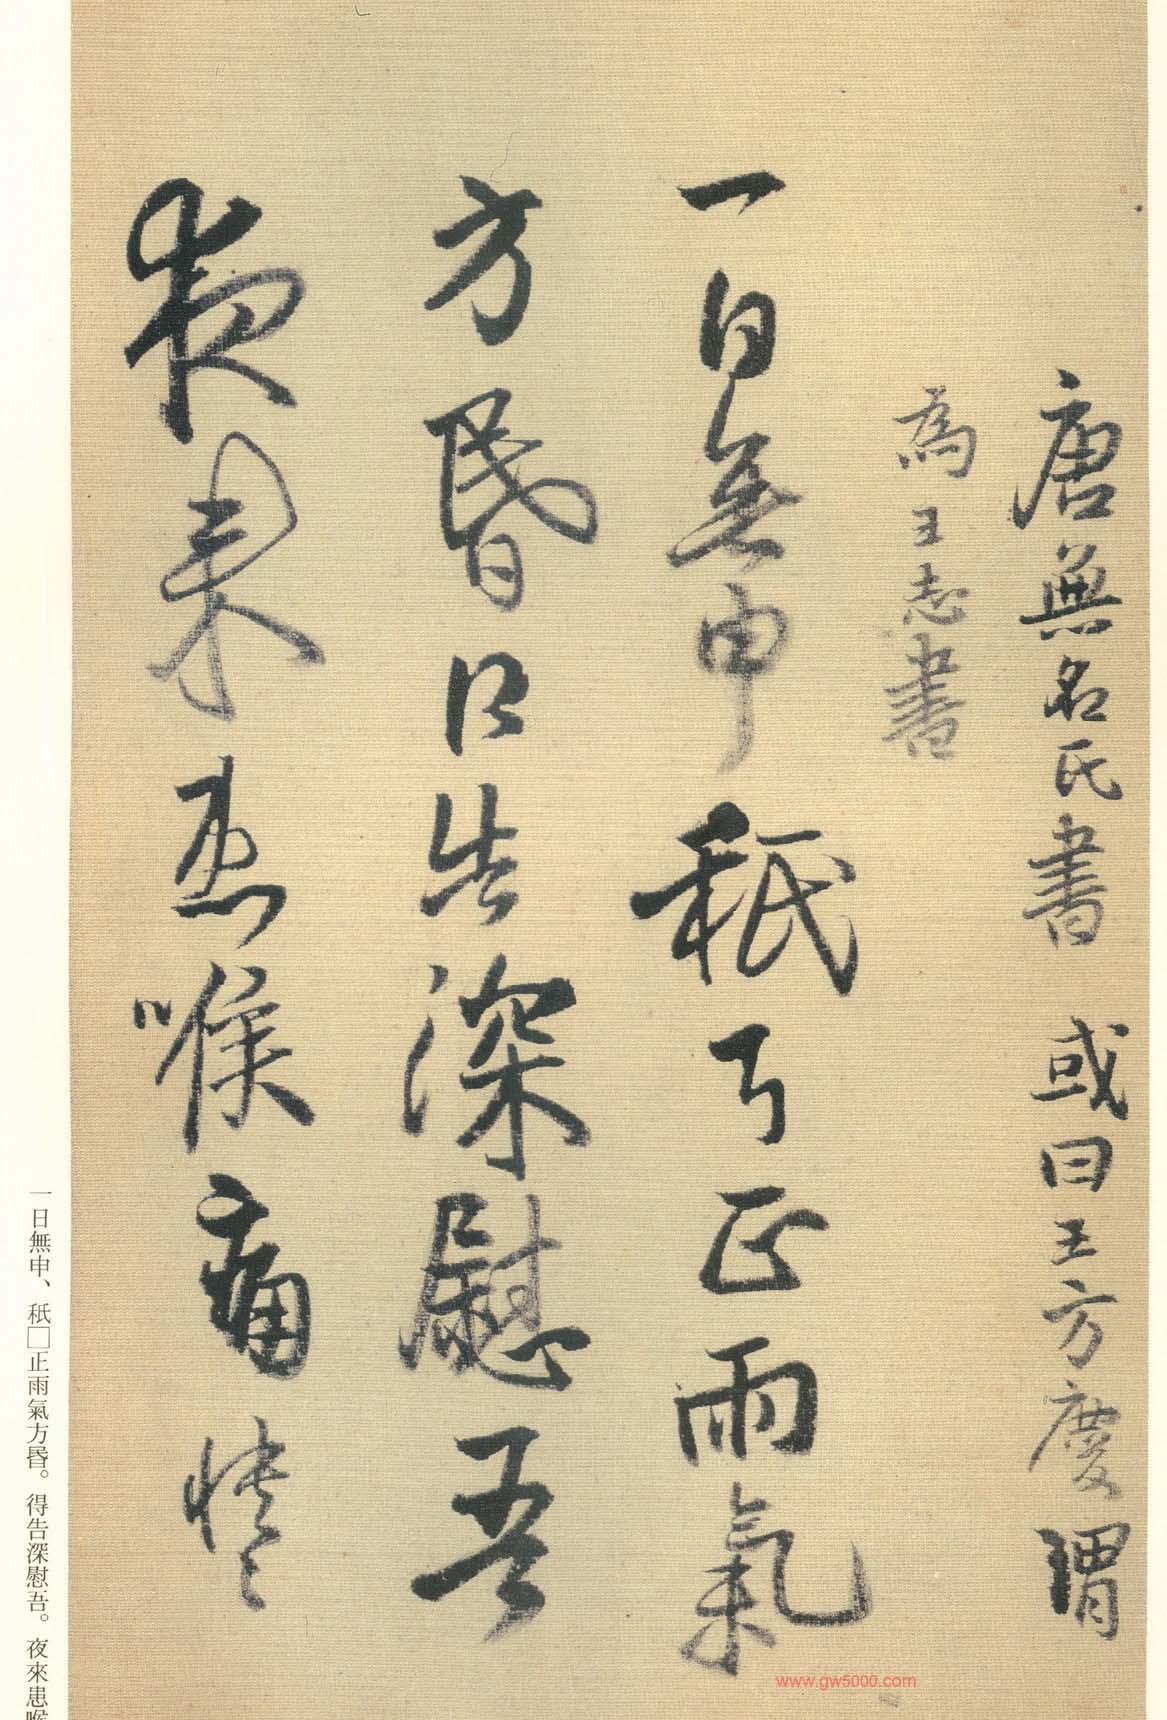 唐無名氏書 或曰王方慶謂
為王志書
一日無申秖
正雨氣
方昏得告深慰吾
夜來患喉痛憒憒
一日無申、秖□正雨氣方昏。得告深慰吾。夜來患喉
www.gw5000.com